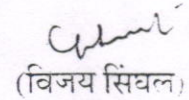 (विजय सिंघल)